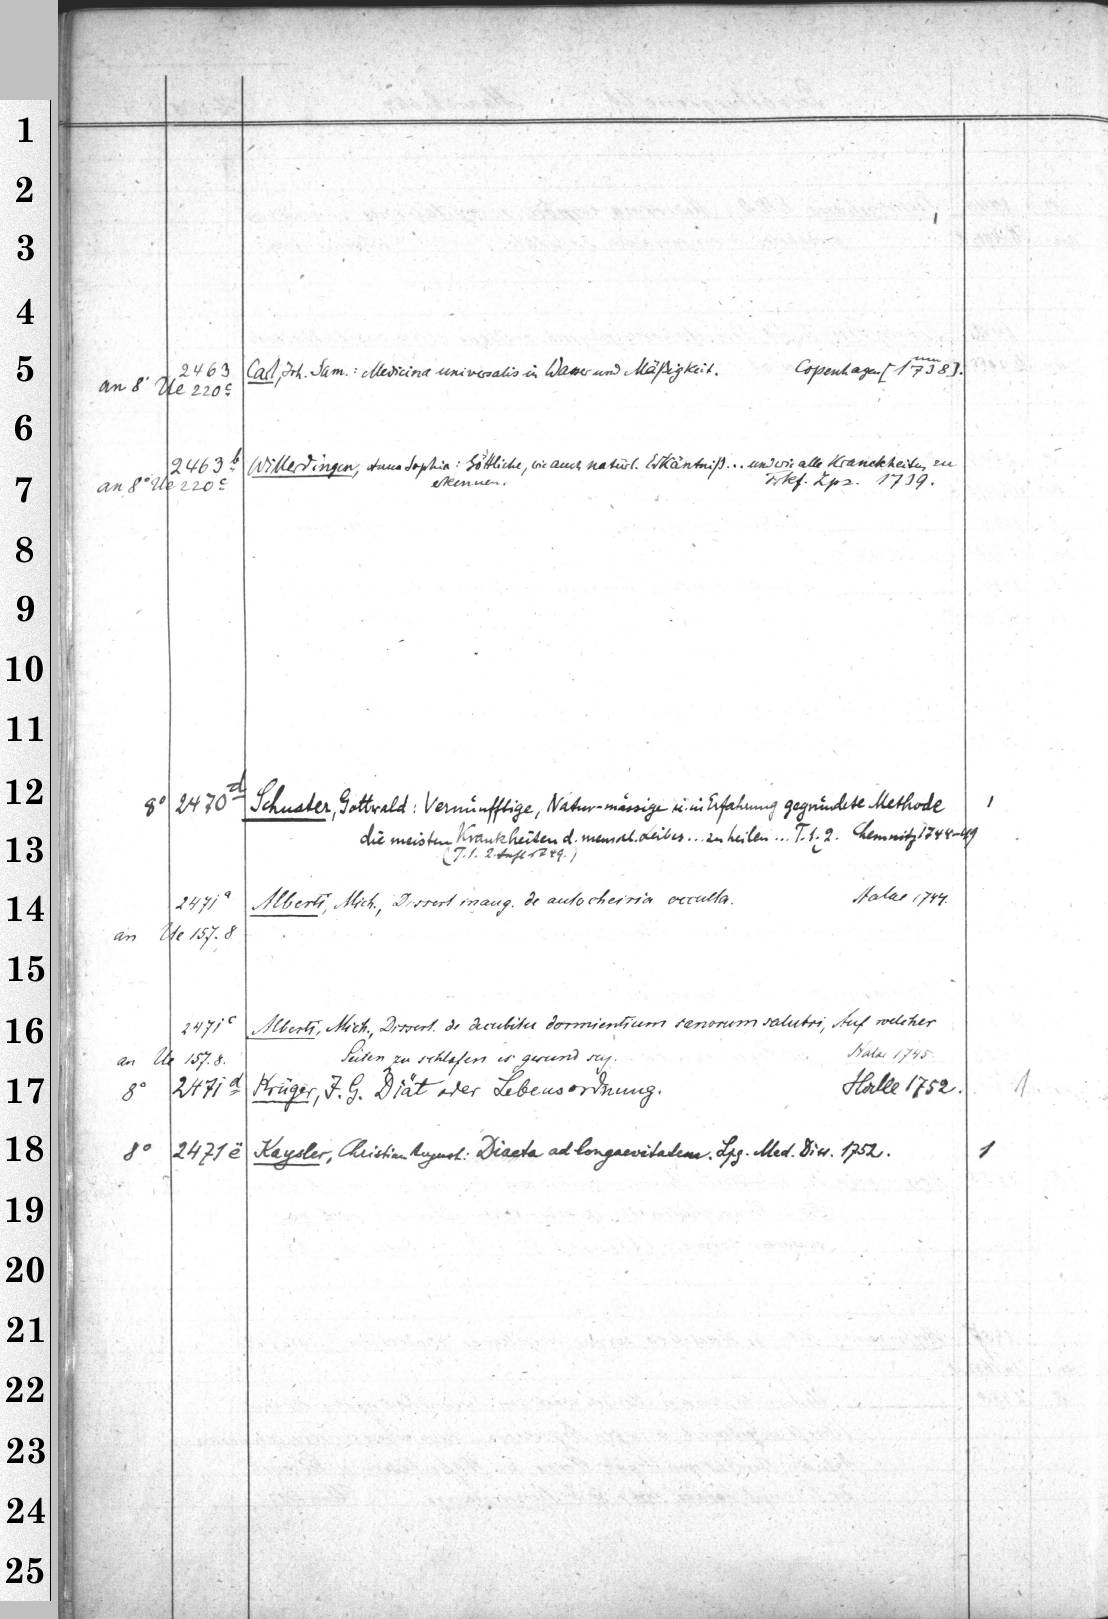 1
2
3
4
5
2463 Carl, Joh. Sam.: Medicina universalis in Wasser und Mäßigkeit. Copenhagen [1738].
an 8° Ue 220 c
6
2463 b Willerdingen, Anna Sophia: Göttliche, wie auch natürl. Erkäntniß... und wie alle Kranckheiten zu
7
an 8° Ue 220 c erkennen. Frkf. Lpz. 1739.
8
9
10
11
12
8° 2470 d Schuster, Gottwald: Vernünfftige, Natur-mässige u. in Erfahrung gegründete Methode 1
13
die meisten Krankheiten d. menschl. Leibes... zu heilen... T. 1. 2. Chemnitz 1744-49
(T. 1. 2. Aufl. 1749.)
14
2471 a Alberti, Mich., Dissert. inaug. de autocheiria occulta. Halae 1744.
an Ue 157. 8
15
16
2471 c Alberti, Mich., Dissert. de decubitu dormientium sanorum salubri, Auf welcher
an Ue 157. 8. Seiten zu schlafen es gesund sey. Halae 1745.
17
8° 2471 d Krüger, J. G. Diät oder Lebensordnung. Halle 1752. 1
18
8° 2471 e Kaysler, Christian August: Diaeta ad longaevitatem. Lpg. Med. Diss. 1752. 1
19
20
21
22
23
24
25